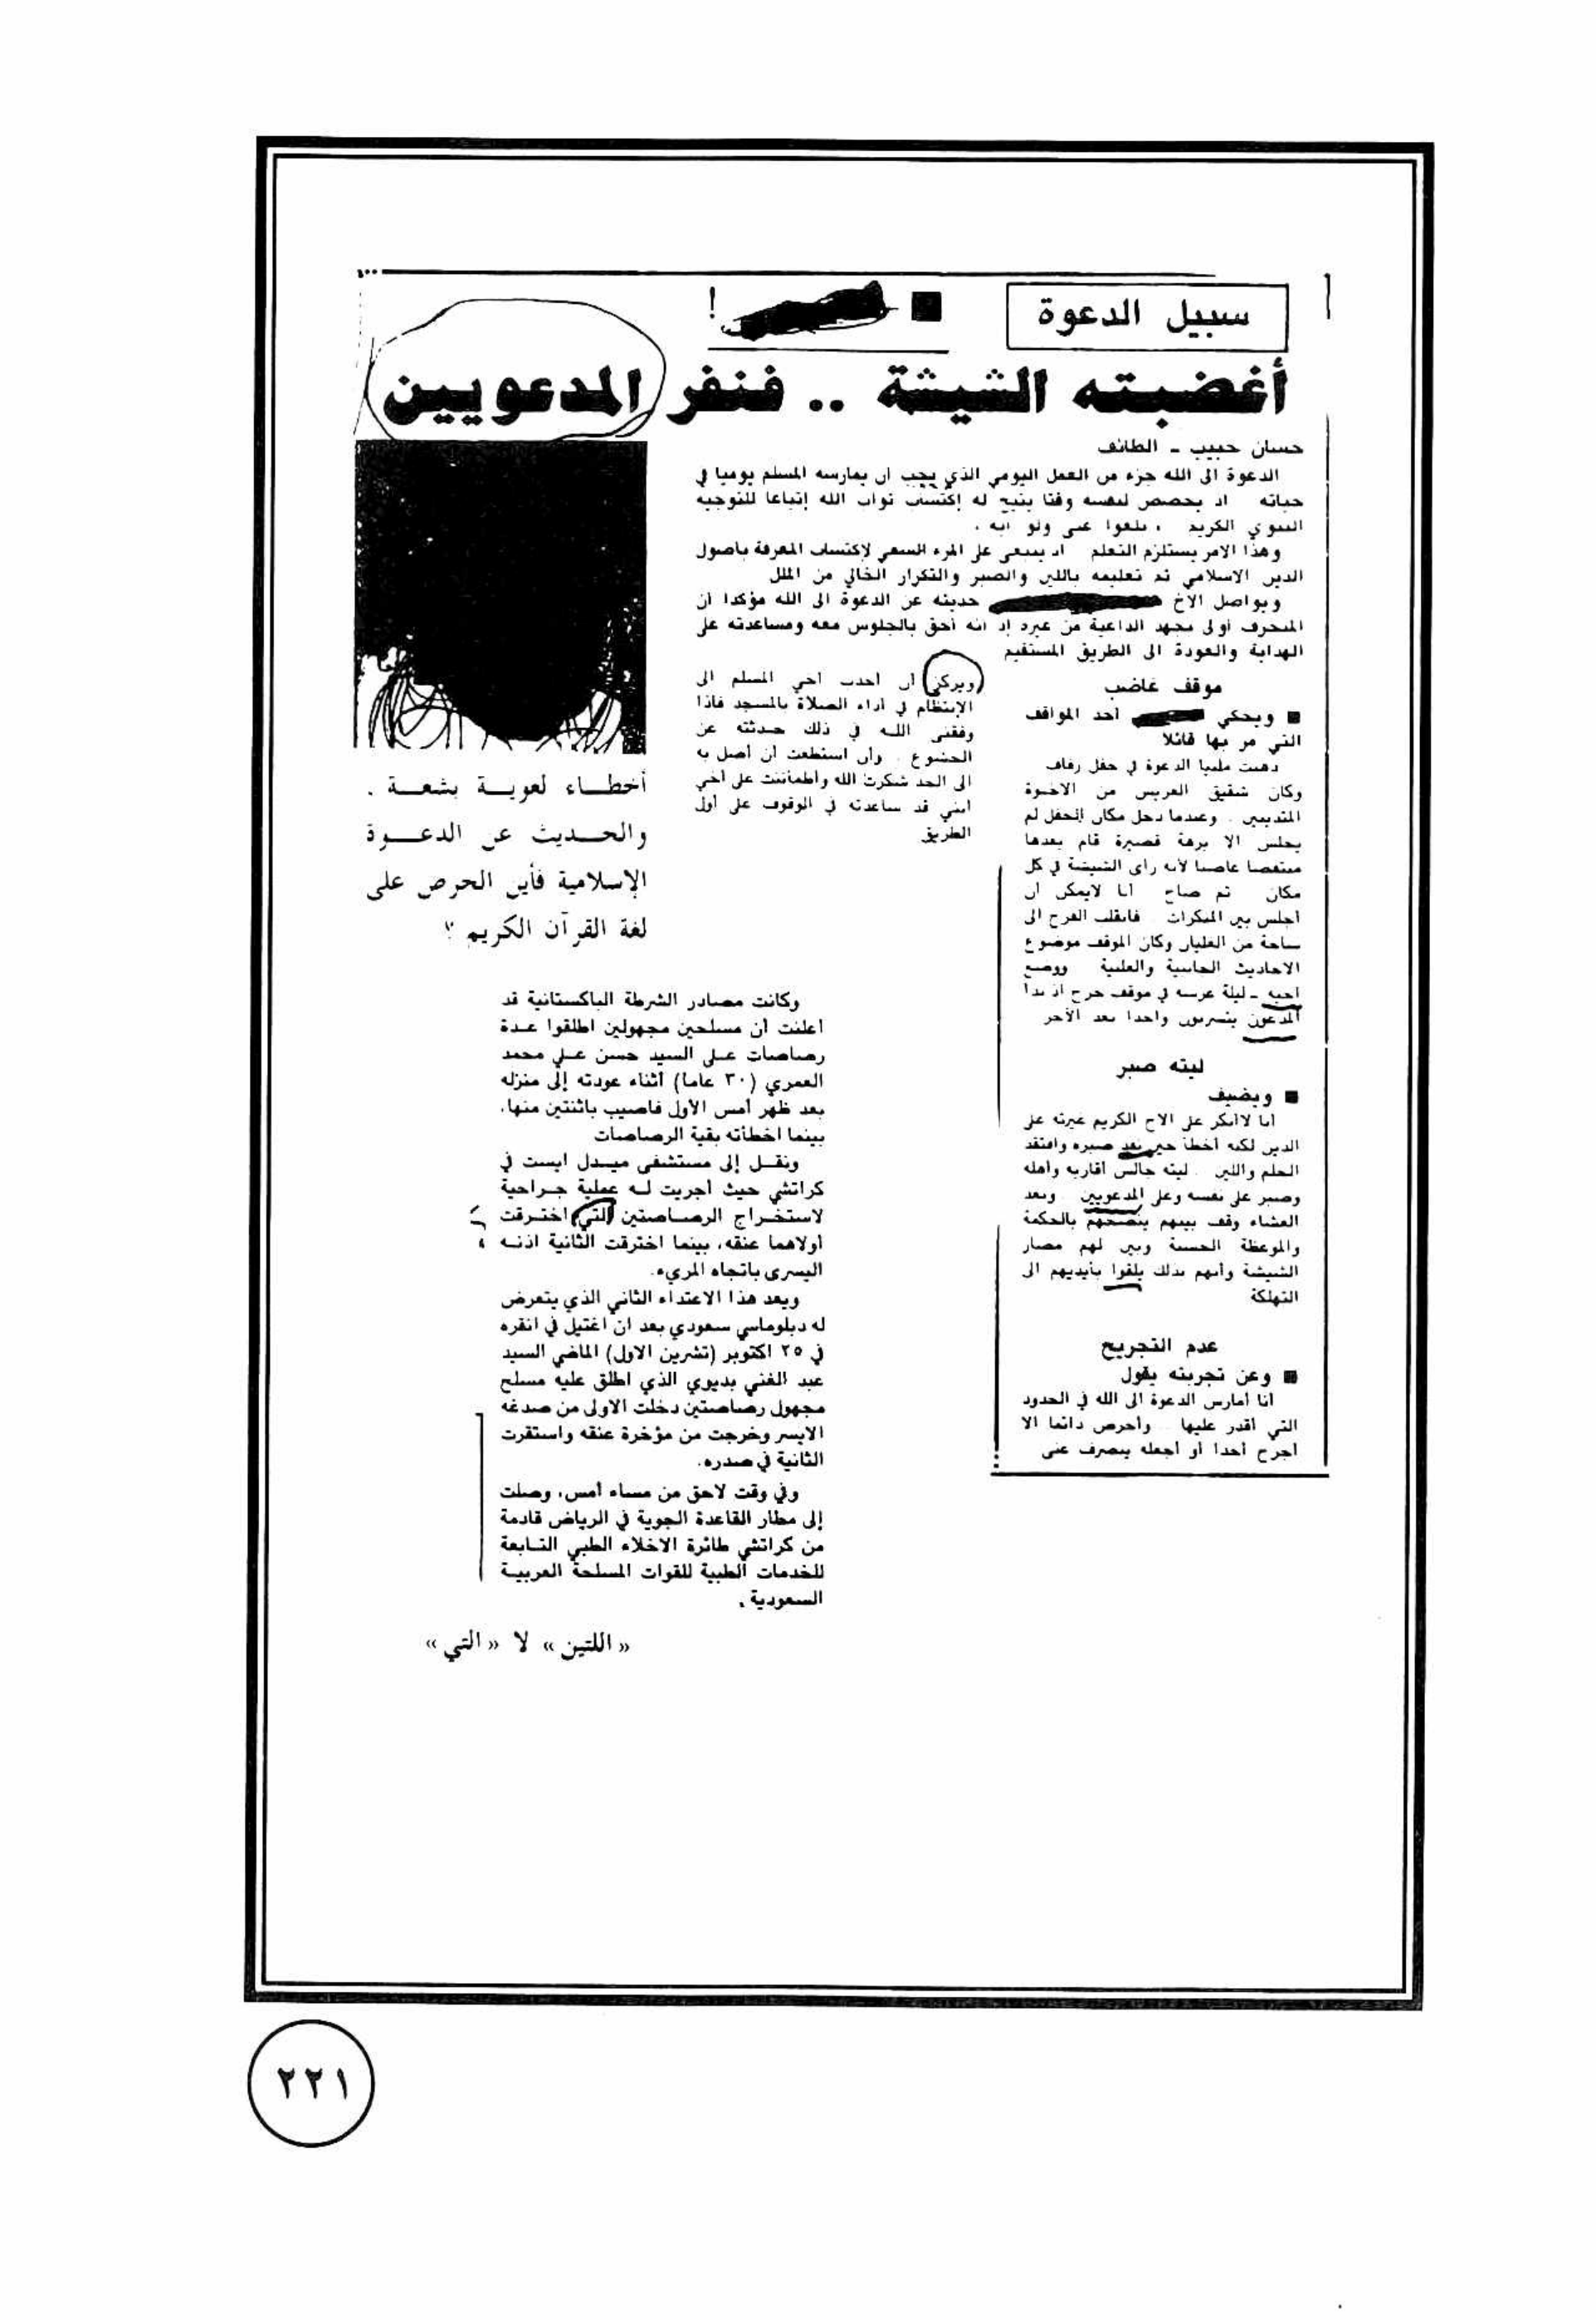 سبيل الدعوة
!
أغضبته الشيشة .. فنفر المدعويين
حسان حبيب - الطائف
الدعوة الى الله جزء من العمل اليومي الذي يجب ان يمارسه المسلم يوميا في
حياته اذ يخصص لنفسه وقتا يتيح له إكتساب ثواب الله إتباعا للتوجيه
النبوي الكريم ، بلغوا عني ولو آية ،
وهذا الامر يستلزم التعلم اذ ينبغي على المرء السعي لإكتساب المعرفة بأصول
الدين الاسلامي ثم تعليمه باللين والصبر والتكرار الخالي من الملل
ويواصل الأخ حديثه عن الدعوة الى الله مؤكدا أن
المنحرف أولى بجهد الداعية من غيره إذ انه أحق بالجلوس معه ومساعدته على
الهداية والعودة الى الطريق المستقيم
موقف غاضب
ويحكي أحد المواقف
التي مر بها قائلا
ذهبت ملبيا الدعوة في حفل زفاف
وكان شقيق العريس من الاخوة
المتدينين . وعندما دخل مكان الحفل لم
يجلس الا برهة قصيرة قام بعدها
ممتعضا غاضبا لأنه رأى الشيشة في كل
مكان ثم صاح أنا لايمكن أن
أجلس بين المنكرات فانقلب الفرح الى
ساحة من الغليان وكان الموقف موضوع
الأحاديث الجانبية والعلنية ووضع
أخيه - ليلة عرسه في موقف حرج اذ بدأ
المدعون يتسربون واحدا بعد الآخر
ليته صبر
ويضيف
أنا لاأنكر على الاخ الكريم غيرته على
الدين لكنه أخطأ حين نفد صبره وافتقد
الحلم واللين . ليته جالس أقاربه وأهله
وصبر على نفسه وعلى المدعويين وبعد
العشاء وقف بينهم ينصحهم بالحكمة
والموعظة الحسنة وبين لهم مضار
الشيشة وأنهم بذلك يلقوا بأيديهم الى
التهلكة
عدم التجريح
وعن تجربته يقول
أنا أمارس الدعوة الى الله في الحدود
التي أقدر عليها وأحرص دائما الا
أجرح أحدا أو أجعله ينصرف عني
ويركني أن أحدث أخي المسلم الى
الإنتظام في أداء الصلاة بالمسجد فاذا
وفقني اللـه في ذلك حـدثته عن
الخشوع . وأن استطعت أن أصل به
الى الحد شكرت الله وأطماننت على أخي
أنني قد ساعدته في الوقوف على أول
الطريق
أخطــاء لغويــة بشعــة .
والحــديث عن الدعــوة
الإسلامية فأين الحرص على
لغة القرآن الكريم ؟
وكانت مصادر الشرطة الباكستانية قد
أعلنت أن مسلحين مجهولين اطلقوا عـدة
رصاصات علـى السيد حسن علـي محمد
العمري (٣٠ عاما) أثناء عودته إلى منزله
بعد ظهر أمس الأول فاصيب باثنتين منها،
بينما اخطأته بقية الرصاصات
ونقـل إلى مستشفى ميـدل ايست في
كراتشي حيث أجريت لـه عملية جـراحية
لاستخـراج الرصـاصتين التي اختـرقت
أولاهما عنقه، بينما اخترقت الثانية اذنـه
اليسرى باتجاه المريء.
ويعد هذا الاعتداء الثاني الذي يتعرض
له دبلوماسي سعودي بعد ان اغتيل في انقره
في ٢٥ اكتوبر (تشرين الاول) الماضي السيد
عبد الغني بديوي الذي اطلق عليه مسلح
مجهول رصاصتين دخلت الاولى من صدغه
الايسر وخرجت من مؤخرة عنقه واستقرت
الثانية في صدره.
وفي وقت لاحق من مساء أمس، وصلت
إلى مطار القاعدة الجوية في الرياض قادمة
من كراتشي طائرة الاخلاء الطبي التـابعة
للخدمات الطبية للقوات المسلحة العربيـة
السعودية.
« اللتين » لا « التي »
٢٢١